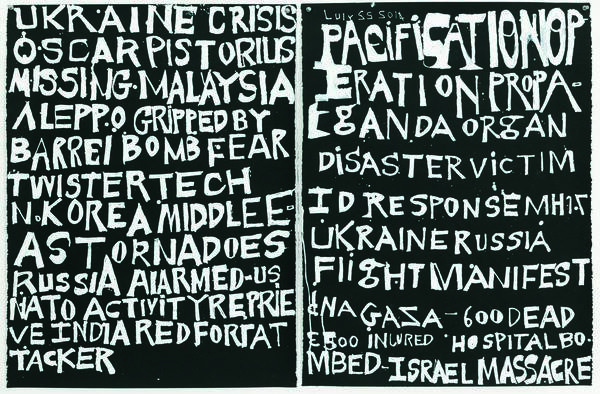 UKRAINE CRISIS
OSCAR PISTORIUS
MISSING·MALAYSIA
ALEPPO GRIPPED BY
BARREl BOMB FEAR
TWISTERTECH
N.KOREA MIDDLE E-
AST ORNADOES
RUSSIA AlARMED-US
NATO ACTIVITY REPRIE
VE INDIA RED FORT AT
TACKER
PACiFiCATION OP
ERATION PROPA-
GANDA ORGAN
DiSASTER ViCTIM
ID RESPONSE MH17
UKRAINE RUSSIA
FlighT MANIFEST
GAZA - 600 DEAD
£500 INJURED HOSPITAL BO
MBED-ISRAEL MASSACRE